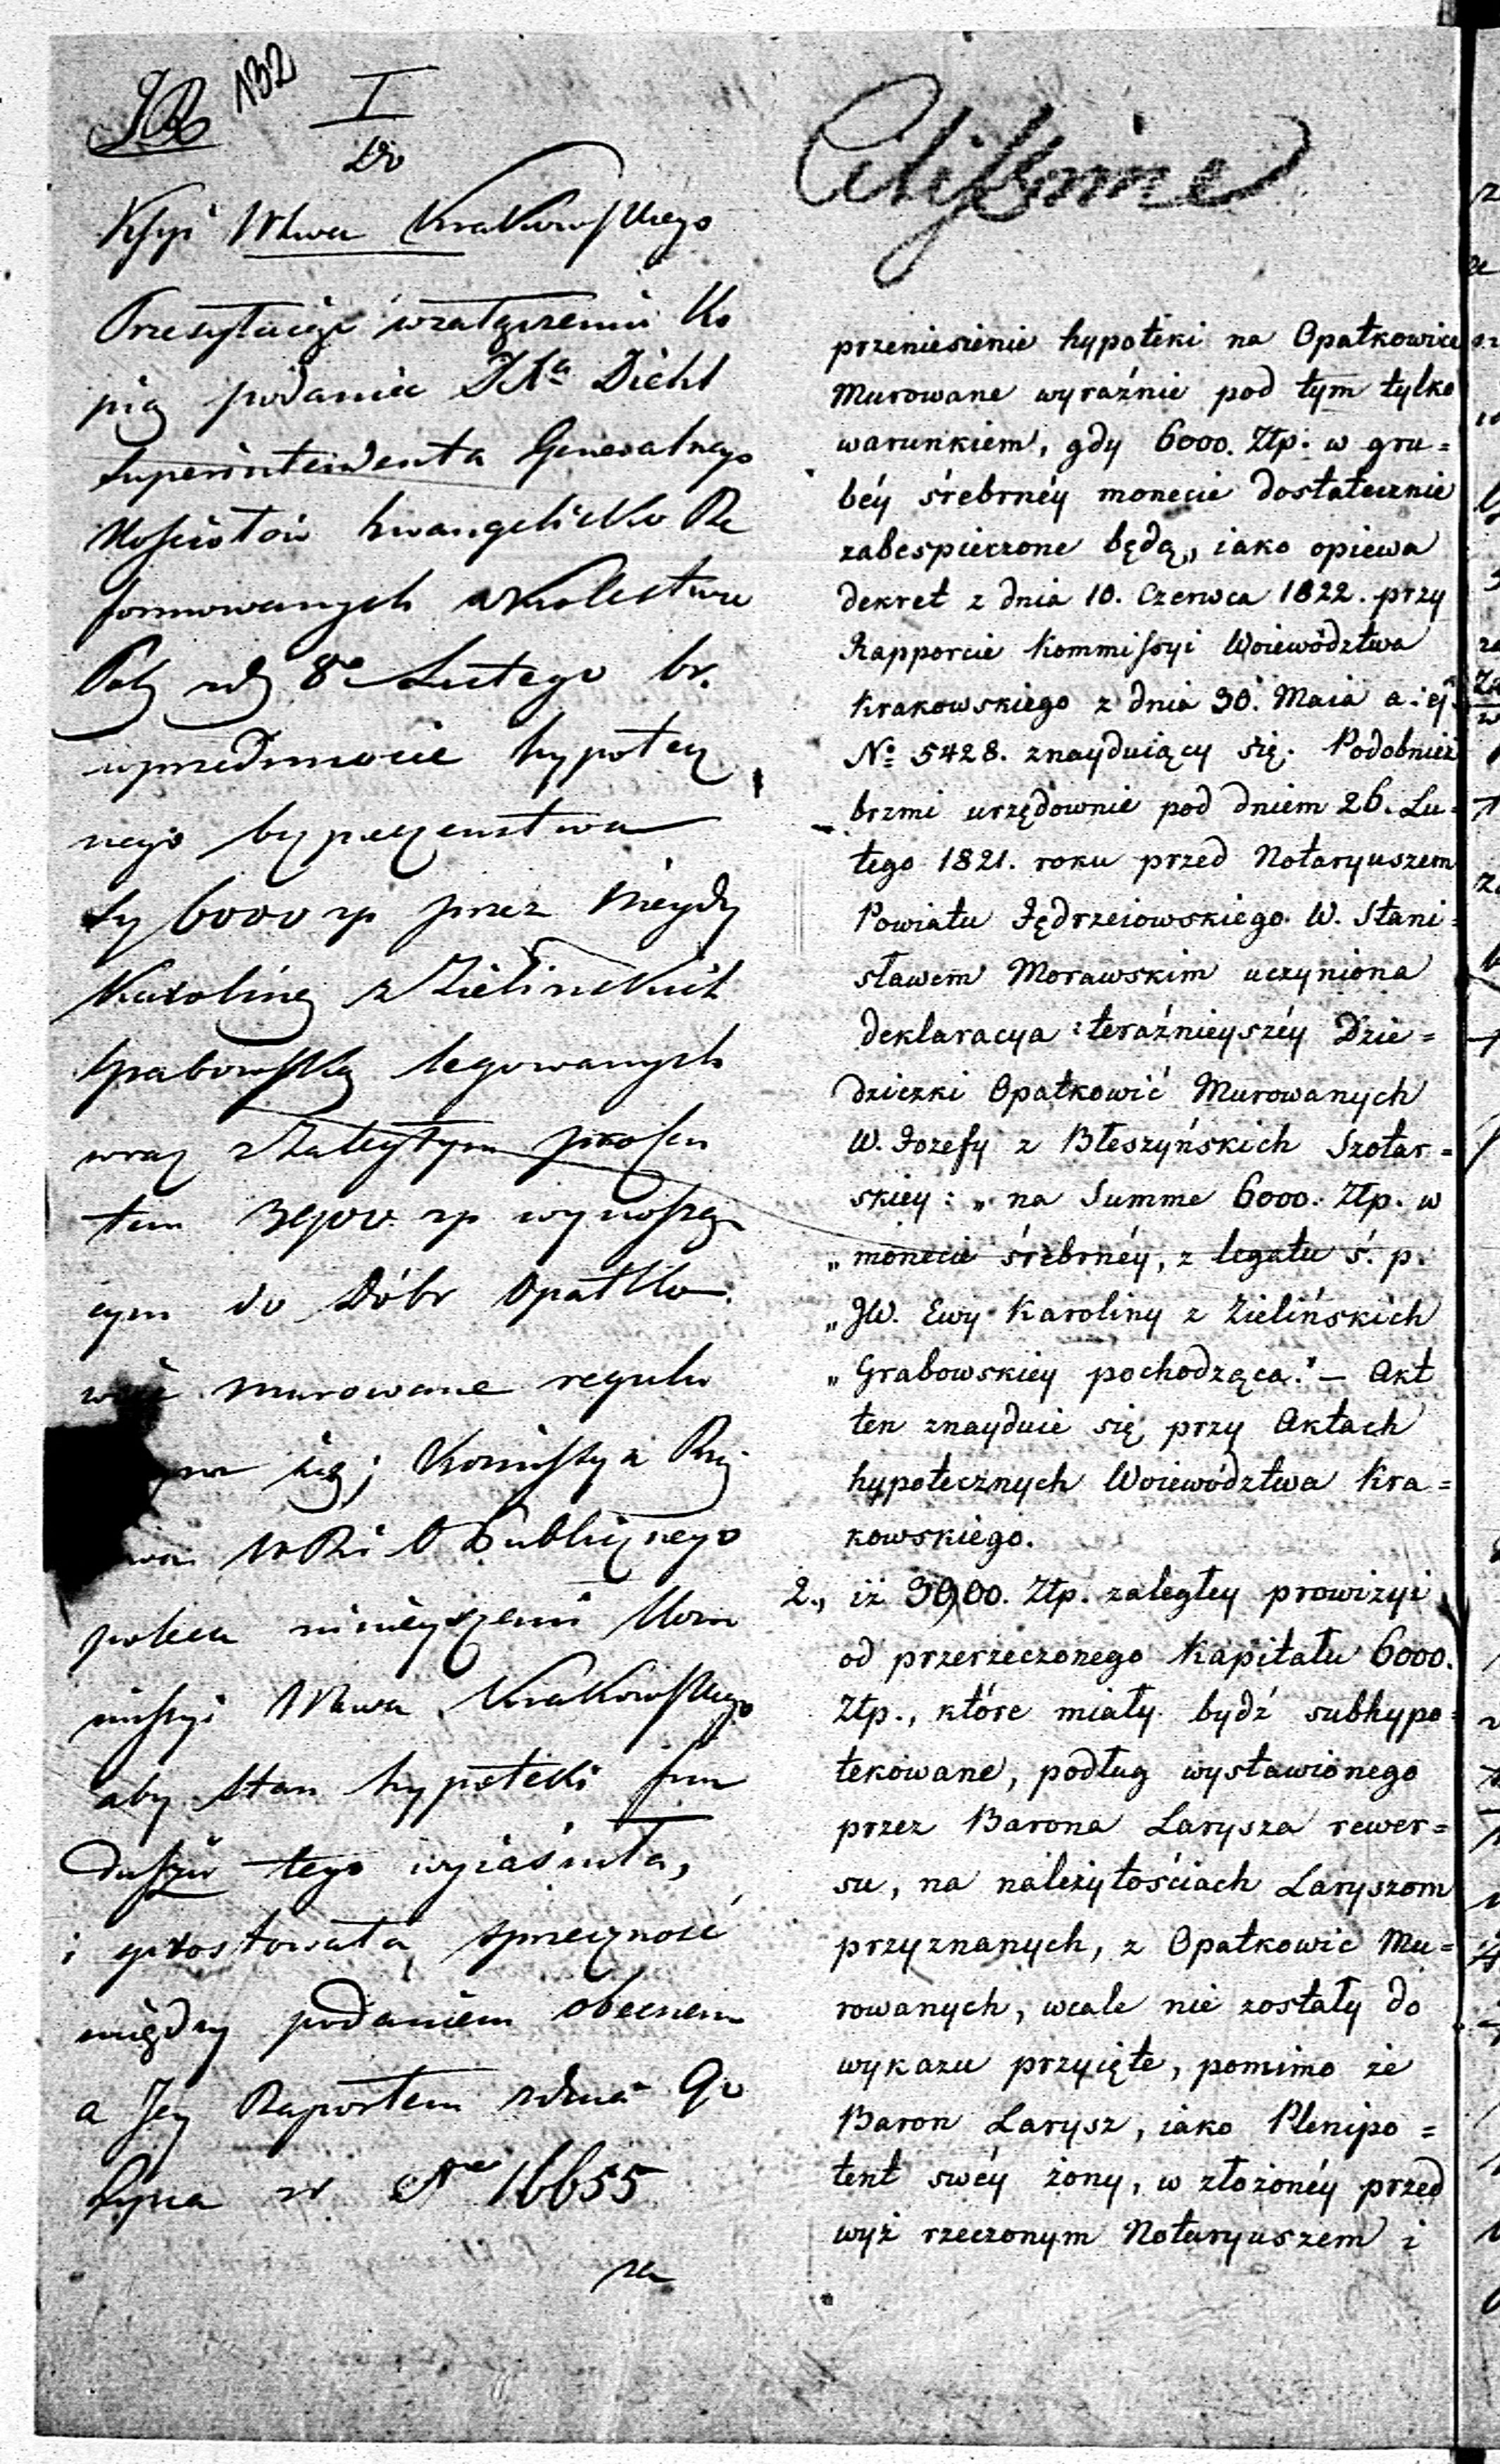 132
I
Do
Kſsyi Wdwa Krakowſkiego
Przesyłaiąc w załączeniu Ko
pią podania JXa Diehl
Superintendenta Generalnego
Kościołów Ewangelicko Re
formowanych w Krolestwie
Pol: z d. 8o Lutego br.
w przedmiocie hypotecz
nego bezpieczenstwa
Sy 6000 zp przez niegdy
Karolinę z Zielinskich
Grabowſką legowanych
wraz z zaległym procen
tem 3900 zp wynoszą
cym do Dóbr Opatko
wic murowane regulu
się; Kommiſsya Rzą
WRi O Publicznego
poleca ninieyszemi Kom
miſsyi Wdwa Krakowſkiego
aby stan hypoteki fun
duſzu tego wyiaśniła,
i sprostowała sprzeczność
między podaniem obecnem
a Jey Raportem z dnia 9o
Lipca r. No 16655
za
przeniesienie hypoteki na Opatkowice
Murowane wyraźnie pod tym tylko
warunkiem, gdy 6000. Złp. w gru=
béy śrebrnéy monecie dostatecznie
zabespieczone będą„ iako opiewa
dekret z dnia 10. Czerwca 1822. przy
Rapporcie Kommiſsyi Woiewództwa
Krakowskiego z dnia 30. Maia a: ej
No 5428. znayduiący się. Podobnież
brzmi urzędownie pod dniem 26. Lu=
tego 1821. roku przed Notaryuszem
Powiatu Jędrzeiowskiego W. Stani=
sławem Morawskim uczyniona
deklaracya teraźnieyszéy Dzie=
dziczki Opatkowić Murowanych
W. Jozefy z Błeszyńskich Szołar=
skiey: „ na Summe 6000. Złp. w
„ monecie śrebrnéy, z legatu ś. p.
„ JW. Ewy Karoliny z Zielińskich
„ Grabowskiey pochodząca." — Akt
ten znayduie się przy Aktach
hypotecznych Woiewództwa Kra=
kowskiego.
2., iż 3900. Złp. zaległey prowizyi
od przerzeczonego Kapitału 6000.
Złp., które miały bydź subhypo=
tekowane, podług wystawionego
przez Barona Larysza rewer=
su, na należytościach Laryszom
przyznanych, z Opatkowic Mu=
rowanych, wcale nie zostały do
wykazu przyięte, pomimo że
Baron Larysz, iako Plenipo=
tent swéy żony, w złożonéy przed
wyż rzeczonym Notaryuszem i